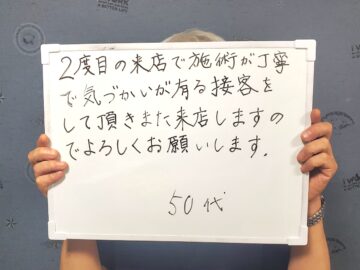 2度目の来店で施術が丁寧
で気づかいが有る接客を
して頂きまた来店しますの
でよろしくお願いします.
50代